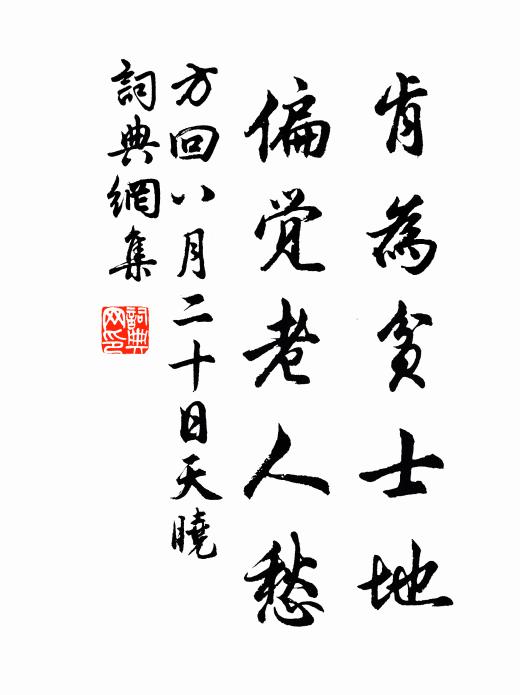 肯為貧士地
偏覚老人愁
方回八月二十日天曉
詞典網集
詞典网印